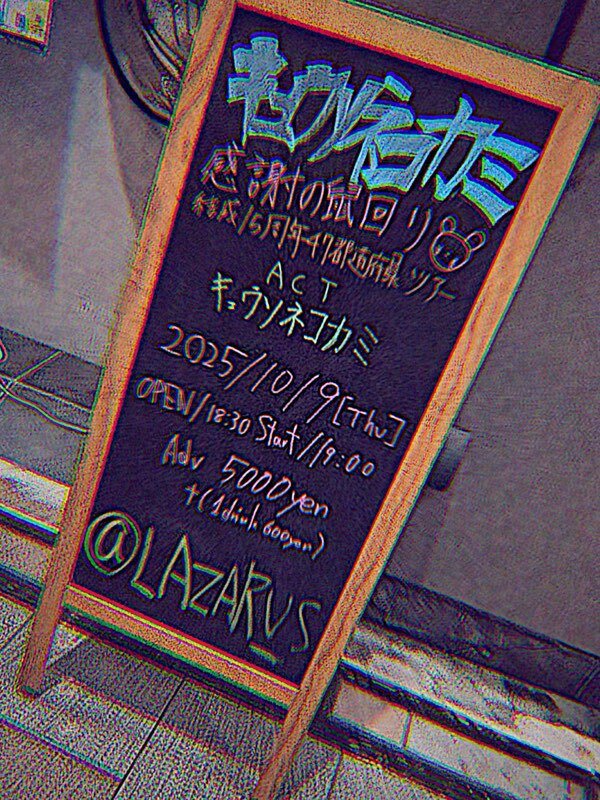 キュウソネコカミ
感謝の鼠回り
結成15周年47都道府県ツアー
ACT
キュウソネコカミ
2025/10/9[Thu]
OPEN/18:30 Start/19:00
Adv 5000yen
+(1drink 600yen)
@LAZARUS